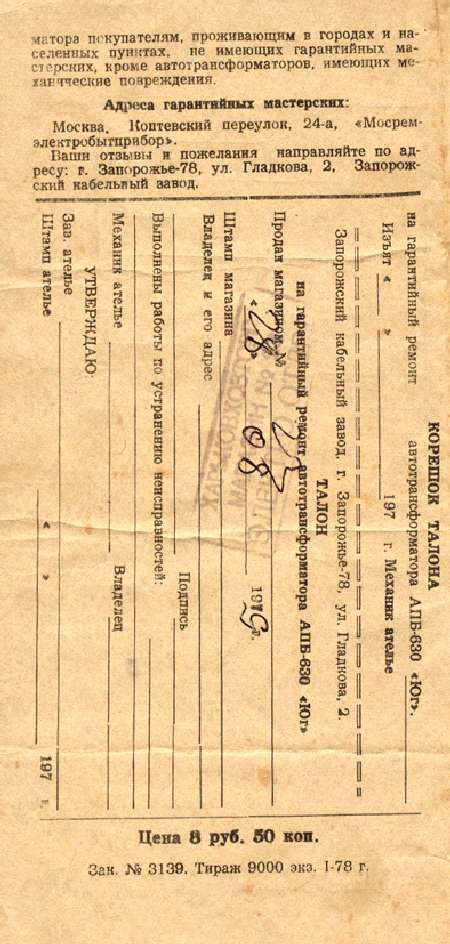 матора покупателям, проживающим в городах и на-
селенных пунктах, не имеющих гарантийных ма-
стерских, кроме автотрансформаторов, имеющих ме-
ханические повреждения.
Адреса гарантийных мастерских:
Москва, Коптевский переулок, 24-а, «Мосрем-
электробытприбор».
Ваши отзывы и пожелания направляйте по ад-
ресу: г. Запорожье-78, ул. Гладкова, 2, Запорож-
ский кабельный завод.
КОРЕШОК ТАЛОНА
на гарантийный ремонт автотрансформатора АПБ-630 «Юг».
Изъят « » 197 г. Механик ателье
Запорожский кабельный завод. г. Запорожье-78, ул. Гладкова, 2.
ТАЛОН
на гарантийный ремонт автотрансформатора АПБ-630 «Юг»
Продан магазином №
«28» 08 1979г.
Штамп магазина
Владелец и его адрес
Подпись
Выполнены работы по устранению неисправностей:
Механик ателье Владелец
УТВЕРЖДАЮ:
Зав. ателье
Штамп ателье « » 197 г.
Цена 8 руб. 50 коп.
Зак. № 3139. Тираж 9000 экз. I-78 г.